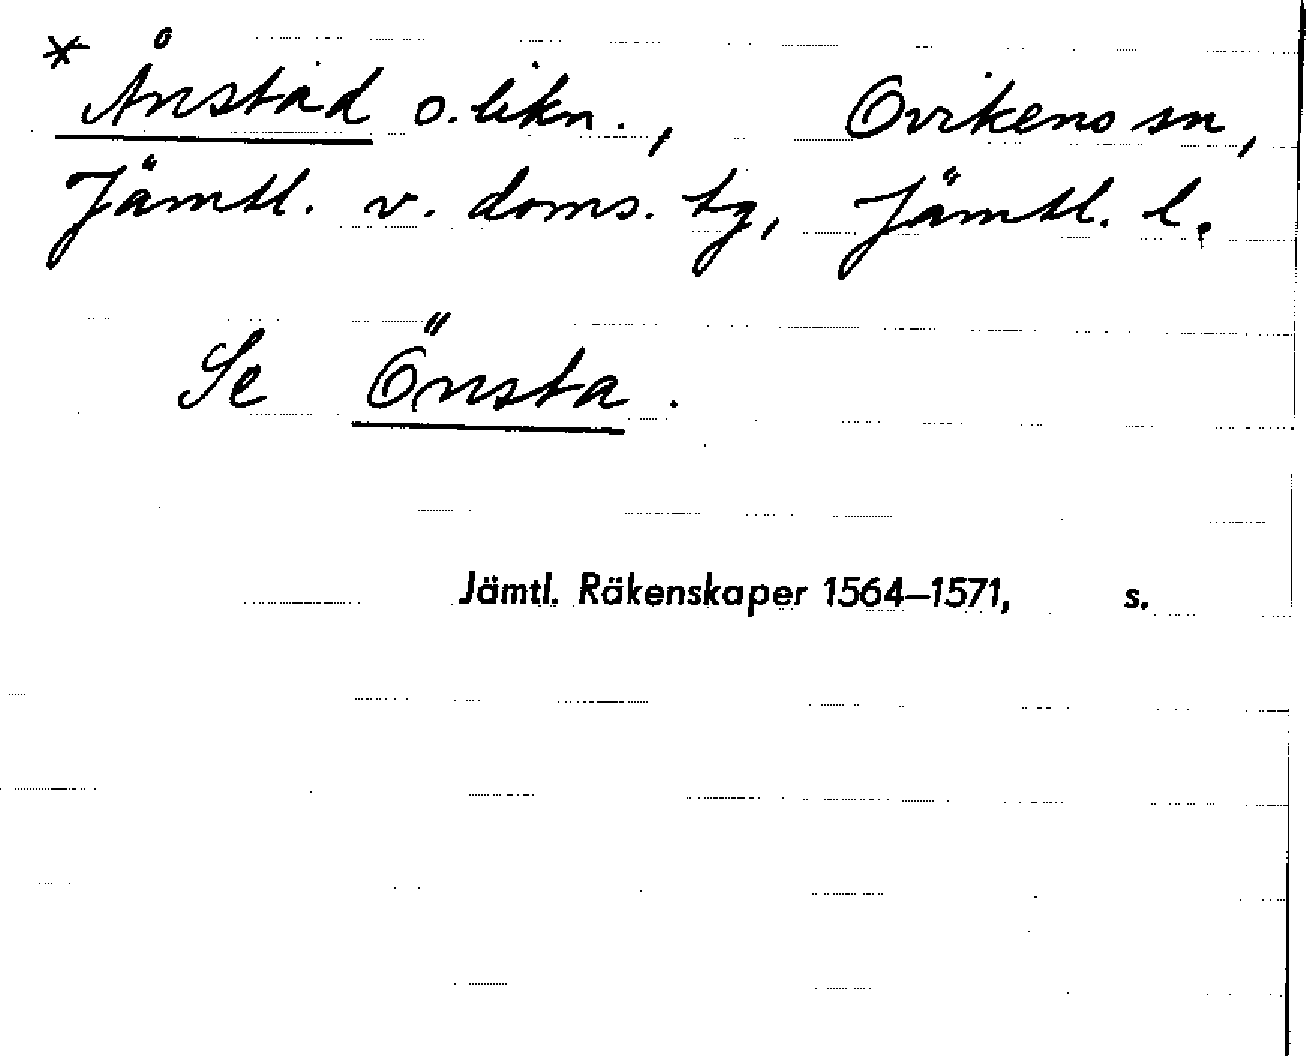 * Ånstad o. likn., Ovikens sn,
Jämtl. v. doms. tg, Jämtl. l.
Se Önsta.
Jämtl. Räkenskaper 1564–1571, s.